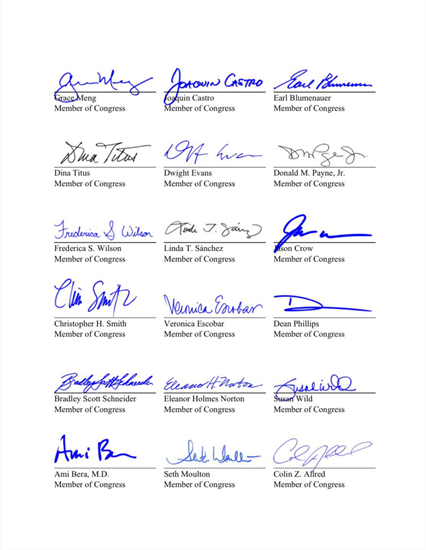 Grace Meng Joaquin Castro Earl Blumenauer
Grace Meng Joaquin Castro Earl Blumenauer
Member of Congress Member of Congress Member of Congress
Dina Titus
Dina Titus Dwight Evans Donald M. Payne, Jr.
Member of Congress Member of Congress Member of Congress
Frederica S Wilson Linda T. Sánchez
Frederica S. Wilson Linda T. Sánchez Jason Crow
Member of Congress Member of Congress Member of Congress
Chris Smith Veronica Escobar
Christopher H. Smith Veronica Escobar Dean Phillips
Member of Congress Member of Congress Member of Congress
Bradley Scott Schneider Eleanor H. Norton Susan Wild
Bradley Scott Schneider Eleanor Holmes Norton Susan Wild
Member of Congress Member of Congress Member of Congress
Ami Bera
Ami Bera, M.D. Seth Moulton Colin Z. Allred
Member of Congress Member of Congress Member of Congress